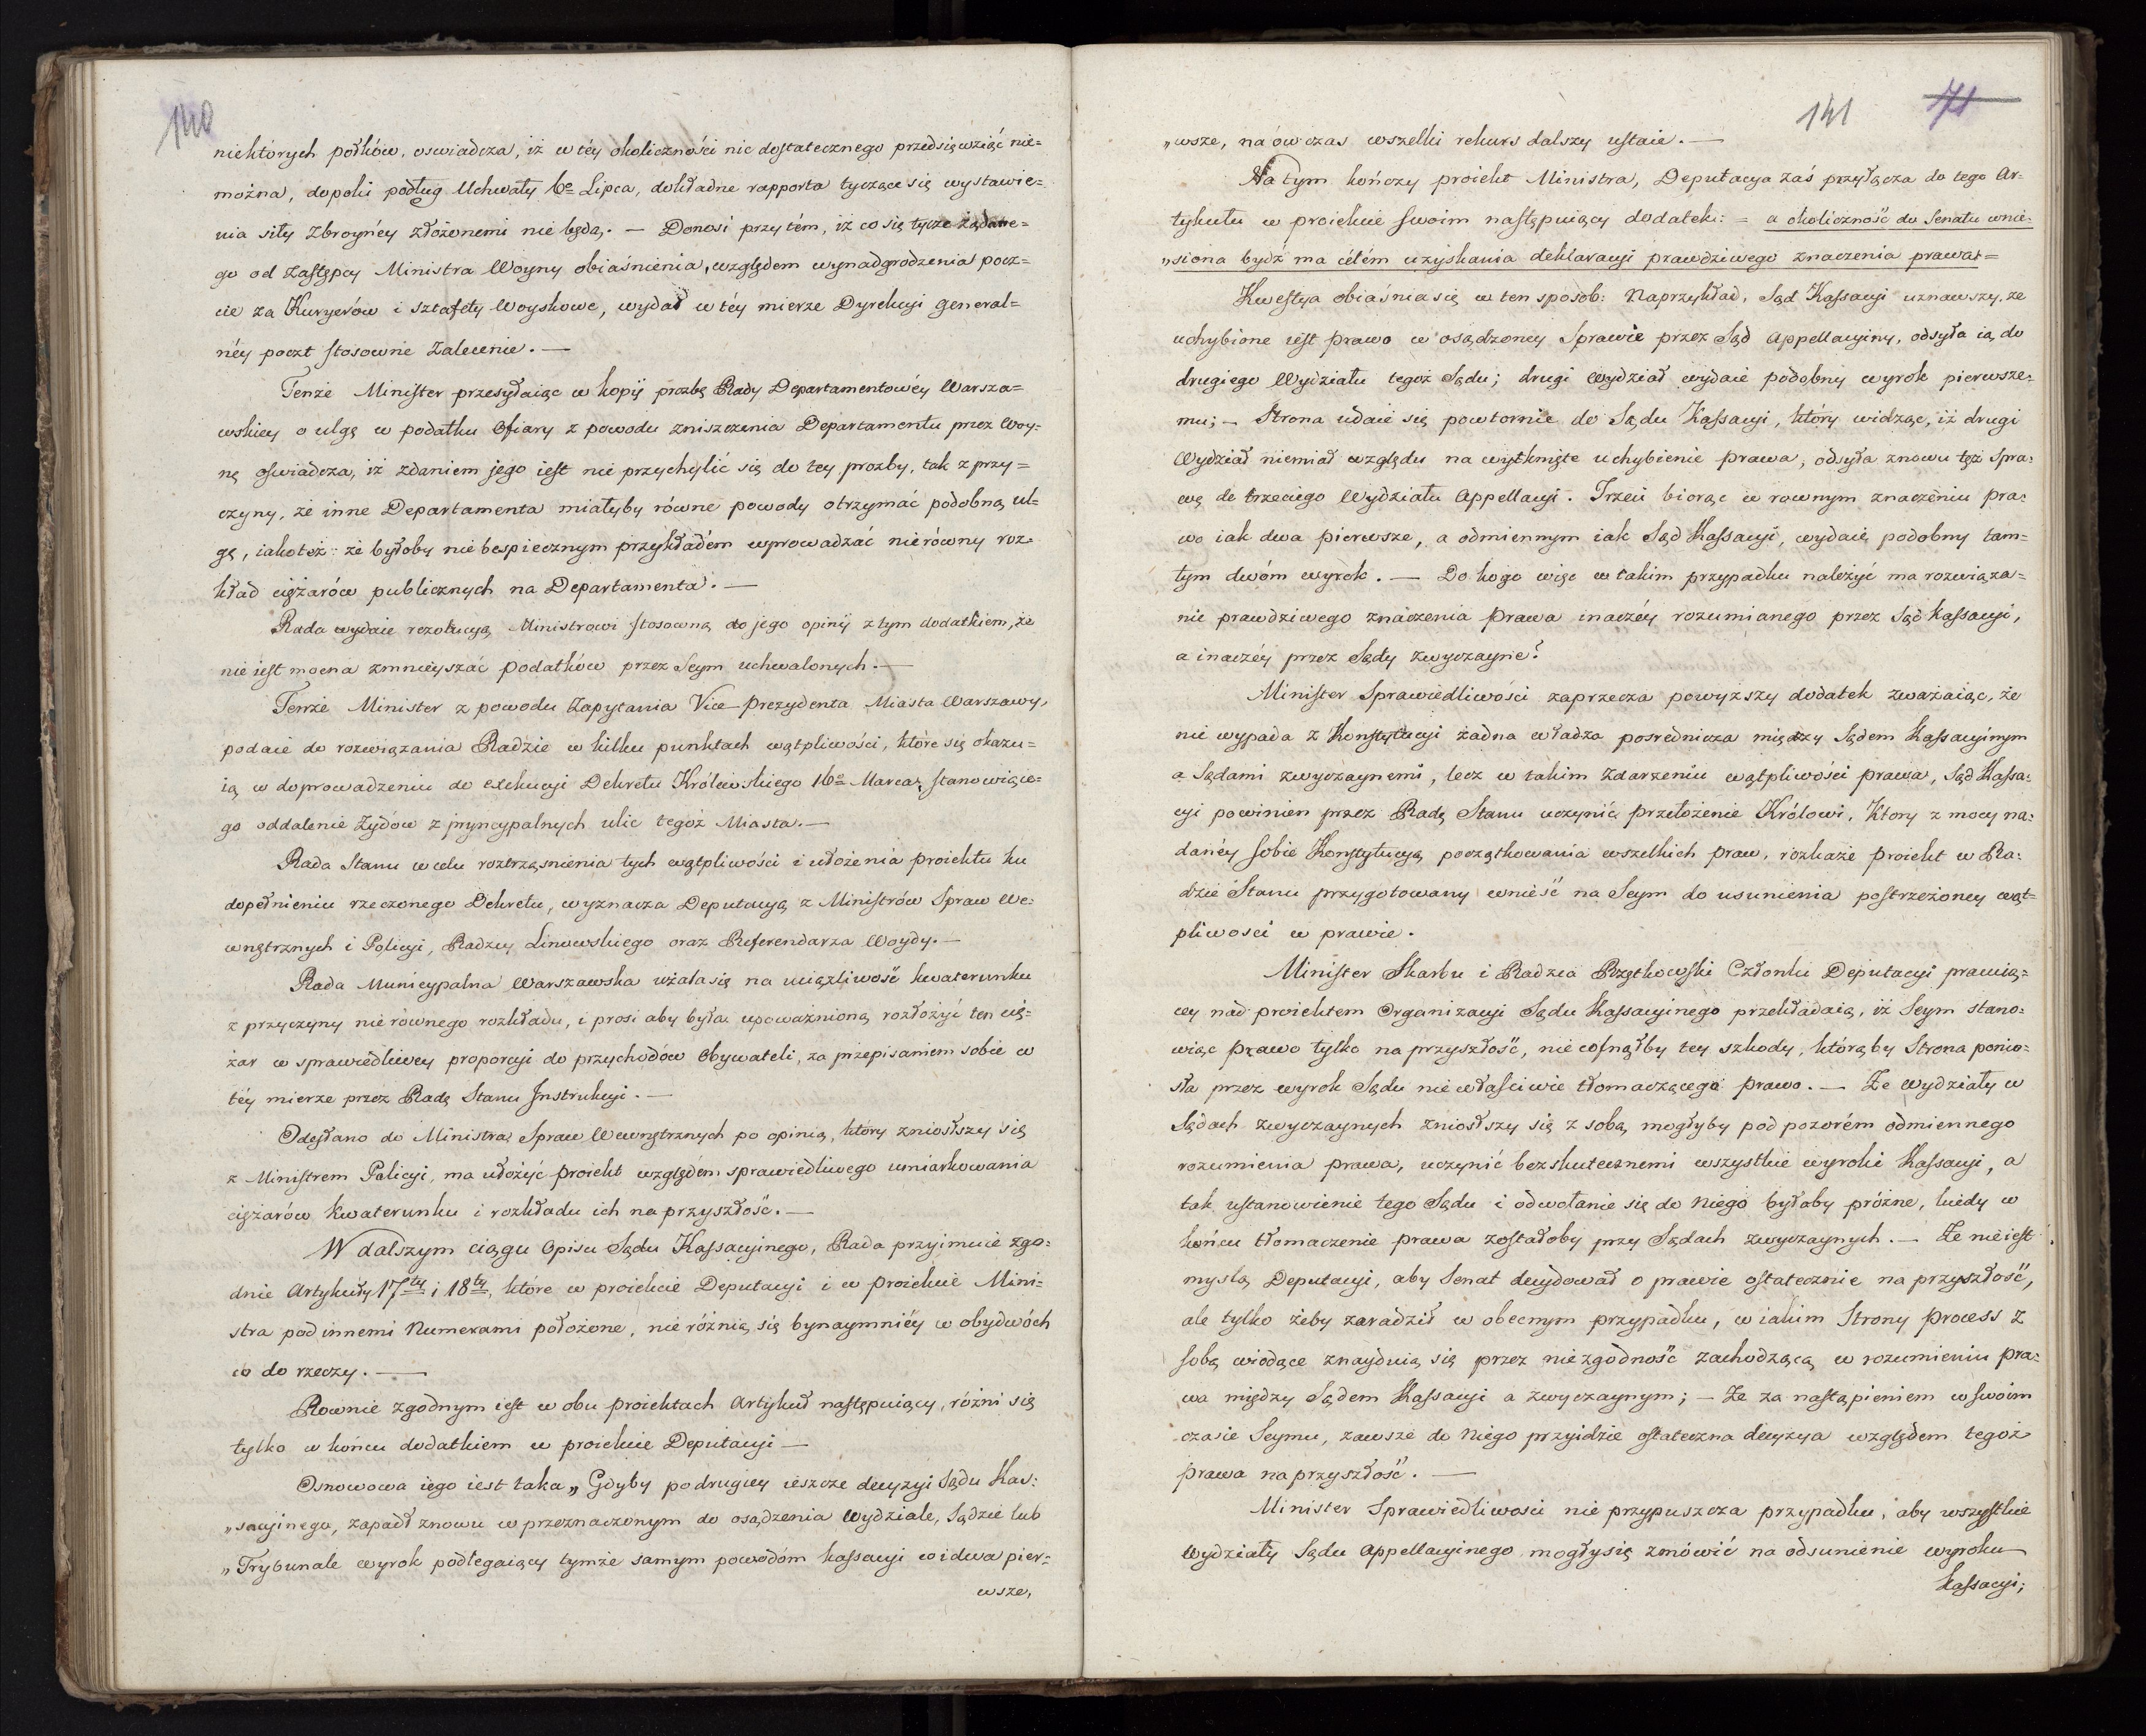 140
niektórych połków, oswiadcza, iż w téy okoliczności nic dostatecznego przedsięwziąć nie=
można, dopóki podług Uchwały 6º Lipca, dokładne rapporta tyczące się wystawie=
nia siły zbroynéy złożonemi nie będą. — Donosi przytém, iż co się tycze żądane=
go od Zastępcy Ministra Woyny obiaśnienia, względem wynadgrodzenia pocz=
cie za Kuryerów i sztafety Woyskowe, wydał w téy mierze Dyrekcyi general=
néy poczt stosowne Zalecenie. —
Tenże Minister przesyłaiąc w kopij prozbę Rady Departamentowéy Warsza=
wskiey o ulgę w podatku Ofiary z powodu zniszczenia Departamentu przez Woy=
nę oswiadcza, iż zdaniem jego iest nie przychylić się do tey prozby, tak z przy=
czyny, że inne Departamenta miałyby równe powody otrzymać podobną ul=
gę, iakoteż że byłoby niebespiecznym przykładem wprowadzać nierówny roz=
kład ciężarów publicznych na Departamenta. —
Rada wydaie rezolucyą Ministrowi stosowną do jego opinij z tym dodatkiem, że
nie iest mocna zmnieyszać podatków przez Seym uchwalonych. —
Tenże Minister z powodu Zapytania Vice-Prezydenta Miasta Warszawy,
podaie do rozwiązania Radzie w kilku punktach wątpliwości, które się okazu=
ią w doprowadzeniu do exekucyi Dekretu Królewskiego 16º Marca, stanowiące=
go oddalenie Żydów z pryncypalnych ulic tegoż Miasta. —
Rada Stanu w celu roztrząsnienia tych wątpliwości i ułożenia proiektu ku
dopełnieniu rzeczonego Dekretu, wyznacza Deputacyą z Ministrów Spraw We=
wnętrznych i Policyi, Radzcy Linowskiego oraz Referendarza Woydy. —
Rada Municypalna Warszawska użala się na uciążliwość kwaterunku
z przyczyny nierównego rozkładu, i prosi aby była upoważnioną rozłożyć ten cię=
żar w sprawiedliwey proporcyi do przychodów Obywateli, za przepisaniem sobie w
téy mierze przez Radę Stanu Instrukcyi. —
Odesłano do Ministra Spraw Wewnętrznych po opinią, który zniosłszy się
z Ministrem Policyi, ma ułożyć proiekt względem sprawiedliwego umiarkowania
ciężarów Kwaterunku i rozkładu ich na przyszłość. —
W dalszym ciągu Opisu Sądu Kassacyinego, Rada przyimuie zgo=
dnie Artykuły 17ty i 18ty, które w proiekcie Deputacyi i w proiekcie Mini=
stra pod innemi Numerami położone, nie różnią się bynaymniéy w obydwóch
co do rzeczy. —
Rownie zgodnym iest w obu proiektach Artykuł następuiący, różni się
tylko w końcu dodatkiem w proiekcie Deputacyi —
Osnowowa iego iest taka „Gdyby po drugiey ieszcze decyzyi Sądu Kas=
„sacyinego, zapadł znowu w przeznaczonym do osądzenia Wydziale, Sądzie lub
„Trybunale wyrok podlegaiący tymże samym powodóm kassacyi co i dwa pier=
wsze,
141 71
„wsze, naówczas wszelki rekurs dalszy ustaie. —
Na tym kończy proiekt Ministra, Deputacya zaś przyłącza do tego Ar=
tykułu w proiekcie swoim następuiący dodatek: = a okoliczność do Senatu wnie=
„siona bydź ma célém uzyskania deklaracyi prawdziwego znaczenia prawa =
Kwestya obiaśnia się w ten sposob: Naprzykład, Sąd Kassacyi uznawszy, że
uchybione iest prawo w osądzoney Sprawie przez Sąd Appellacyiny, odsyła ią do
drugiego Wydziału tegoż Sądu; drugi Wydział wydaie podobny wyrok pierwsze=
mu; — Strona udaie się powtornie do Sądu Kassacyi, który widząc, iż drugi
Wydział niemiał względu na wytknięte uchybienie prawa, odsyła znowu też Spra=
wę do trzeciego Wydziału Appellacyi. Trzeci biorąc w rownym znaczeniu pra=
wo iak dwa pierwsze, a odmiennym iak Sąd Kassacyi, wydaie podobny tam=
tym dwóm wyrok. — Do kogo więc w takim przypadku należyć ma rozwiąza=
nie prawdziwego znaczenia prawa inaczéy rozumianego przez Sąd Kassacyi,
a inaczéy przez Sądy zwyczayne?
Minister Sprawiedliwości zaprzecza powyższy dodatek zważaiąc, że
nie wypada z Konstytucyi żadna władza posrednicza między Sądem Kassacyinym
a Sądami zwyczaynemi, lecz w takim Zdarzeniu wątpliwości prawa, Sąd Kassa=
cyi powinien przez Radę Stanu uczynić przełożenie Królowi, Ktory z mocy na=
danéy sobie Konstytucyą początkowania wszelkich praw, rozkaże proiekt w Ra=
dzie Stanu przygotowany wnieść na Seym do usunienia postrzeżoney wąt=
pliwosci w prawie.
Minister Skarbu i Radzca Rzętkowski Członki Deputacyi pracuią=
cey nad proiektem Organizacyi Sądu Kassacyinego przekładaią, iż Seym stano=
wiąc prawo tylko na przyszłość, nie cofnąłby tey szkody, którąby Strona ponio=
sła przez wyrok Sądu niewłaściwie tłomaczącego prawo. — Że Wydziały w
Sądach zwyczaynych zniosłszy się z sobą mogłyby pod pozorém odmiennego
rozumienia prawa, uczynić bezskutecznemi wszystkie wyroki Kassacyi, a
tak ustanowienie tego Sądu i odwołanie się do Niego byłaby próżne, kiedy w
końcu tłomaczenie prawa zostałoby przy Sądach zwyczaynych. — Że nie iest
myslą Deputacyi, aby Senat decydował o prawie ostatecznie na przyszłość,
ale tylko żeby zaradził w obecnym przypadku, w iakim Strony process z
sobą wiodące znayduią się przez niezgodność zachodzącą w rozumieniu pra=
wa między Sądem Kassacyi a zwyczaynym; — Że za nastąpieniem w swoim
czasie Seymu, zawsze do Niego przyidzie ostateczna decyzya względem tegoż
prawa na przyszłość. —
Minister Sprawiedliwosci nie przypuszcza przypadku, aby wszystkie
Wydziały Sądu Appellacyinego mogły się zmówić na odsunienie wyroku
Kassacyi;